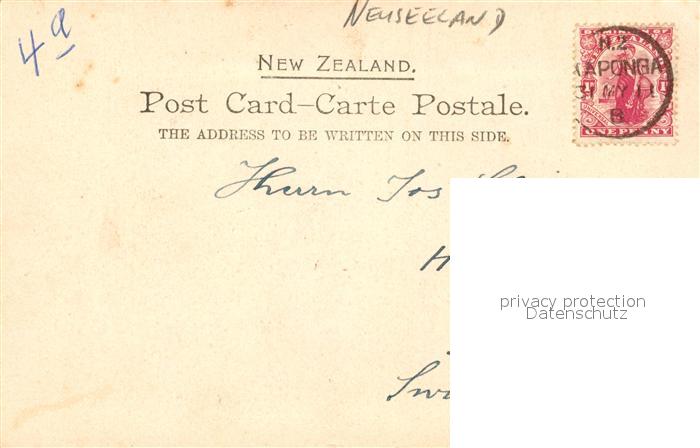 NEUSEELAND
4a
NEW ZEALAND.
Post Card–Carte Postale.
THE ADDRESS TO BE WRITTEN ON THIS SIDE.
N.Z
KAPONGA
31 MY 11
B
ONE PENNY
Herrn Jos
privacy protection
Datenschutz